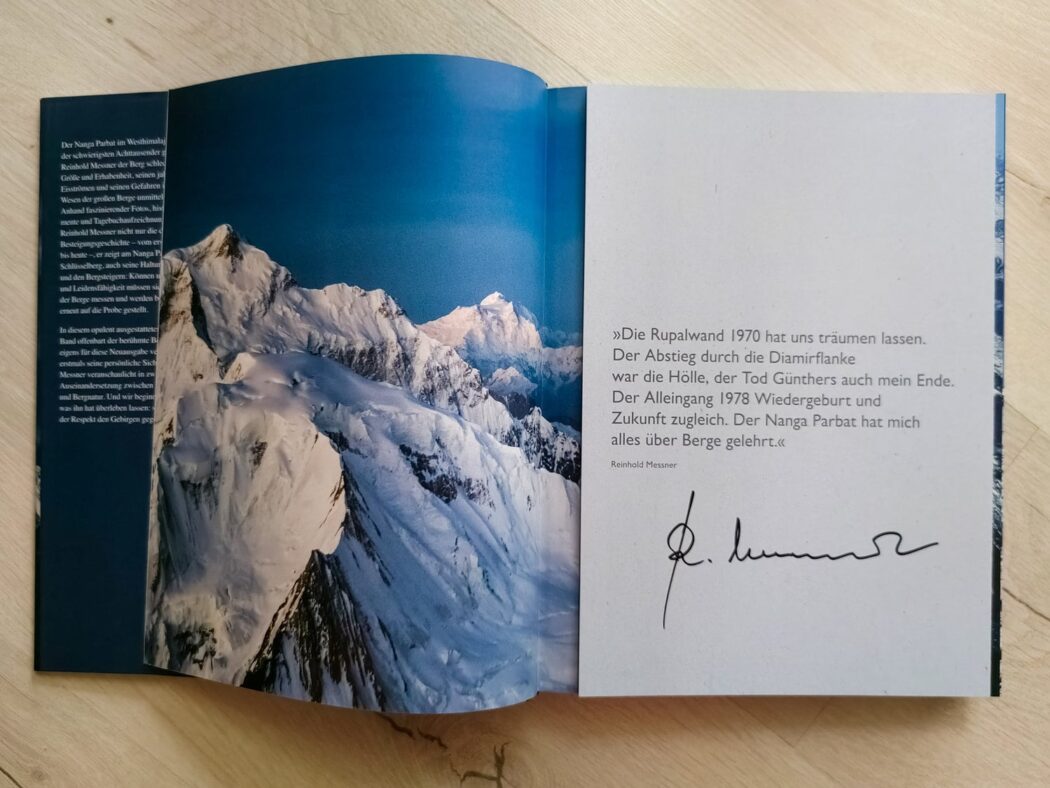 Der Nanga Parbat im Westhimala
der schwierigsten Achttausender
Reinhold Messner der Berg schle
Größe und Erhabenheit, seinen
Eisströmen und seinen Gefahren
Wesen der großen Berge unmittel
Anhand faszinierender Fotos, his
mente und Tagebuchaufzeichnun
Reinhold Messner nicht nur die
Besteigungsgeschichte – vom er
bis heute –, er zeigt am Nanga P
Schlüsselberg, auch seine Haltun
und den Bergsteigern: Können
und Leidensfähigkeit müssen sic
der Berge messen und werden b
erneut auf die Probe gestellt.
In diesem opulent ausgestattete
Band offenbart der berühmte B
eigens für diese Neuausgabe ve
erstmals seine persönliche Sich
Messner veranschaulicht in zw
Auseinandersetzung zwischen
und Bergnatur. Und wir begin
was ihn hat überleben lassen:
der Respekt den Gebirgen geg
»Die Rupalwand 1970 hat uns träumen lassen.
Der Abstieg durch die Diamirflanke
war die Hölle, der Tod Günthers auch mein Ende.
Der Alleingang 1978 Wiedergeburt und
Zukunft zugleich. Der Nanga Parbat hat mich
alles über Berge gelehrt.«
Reinhold Messner